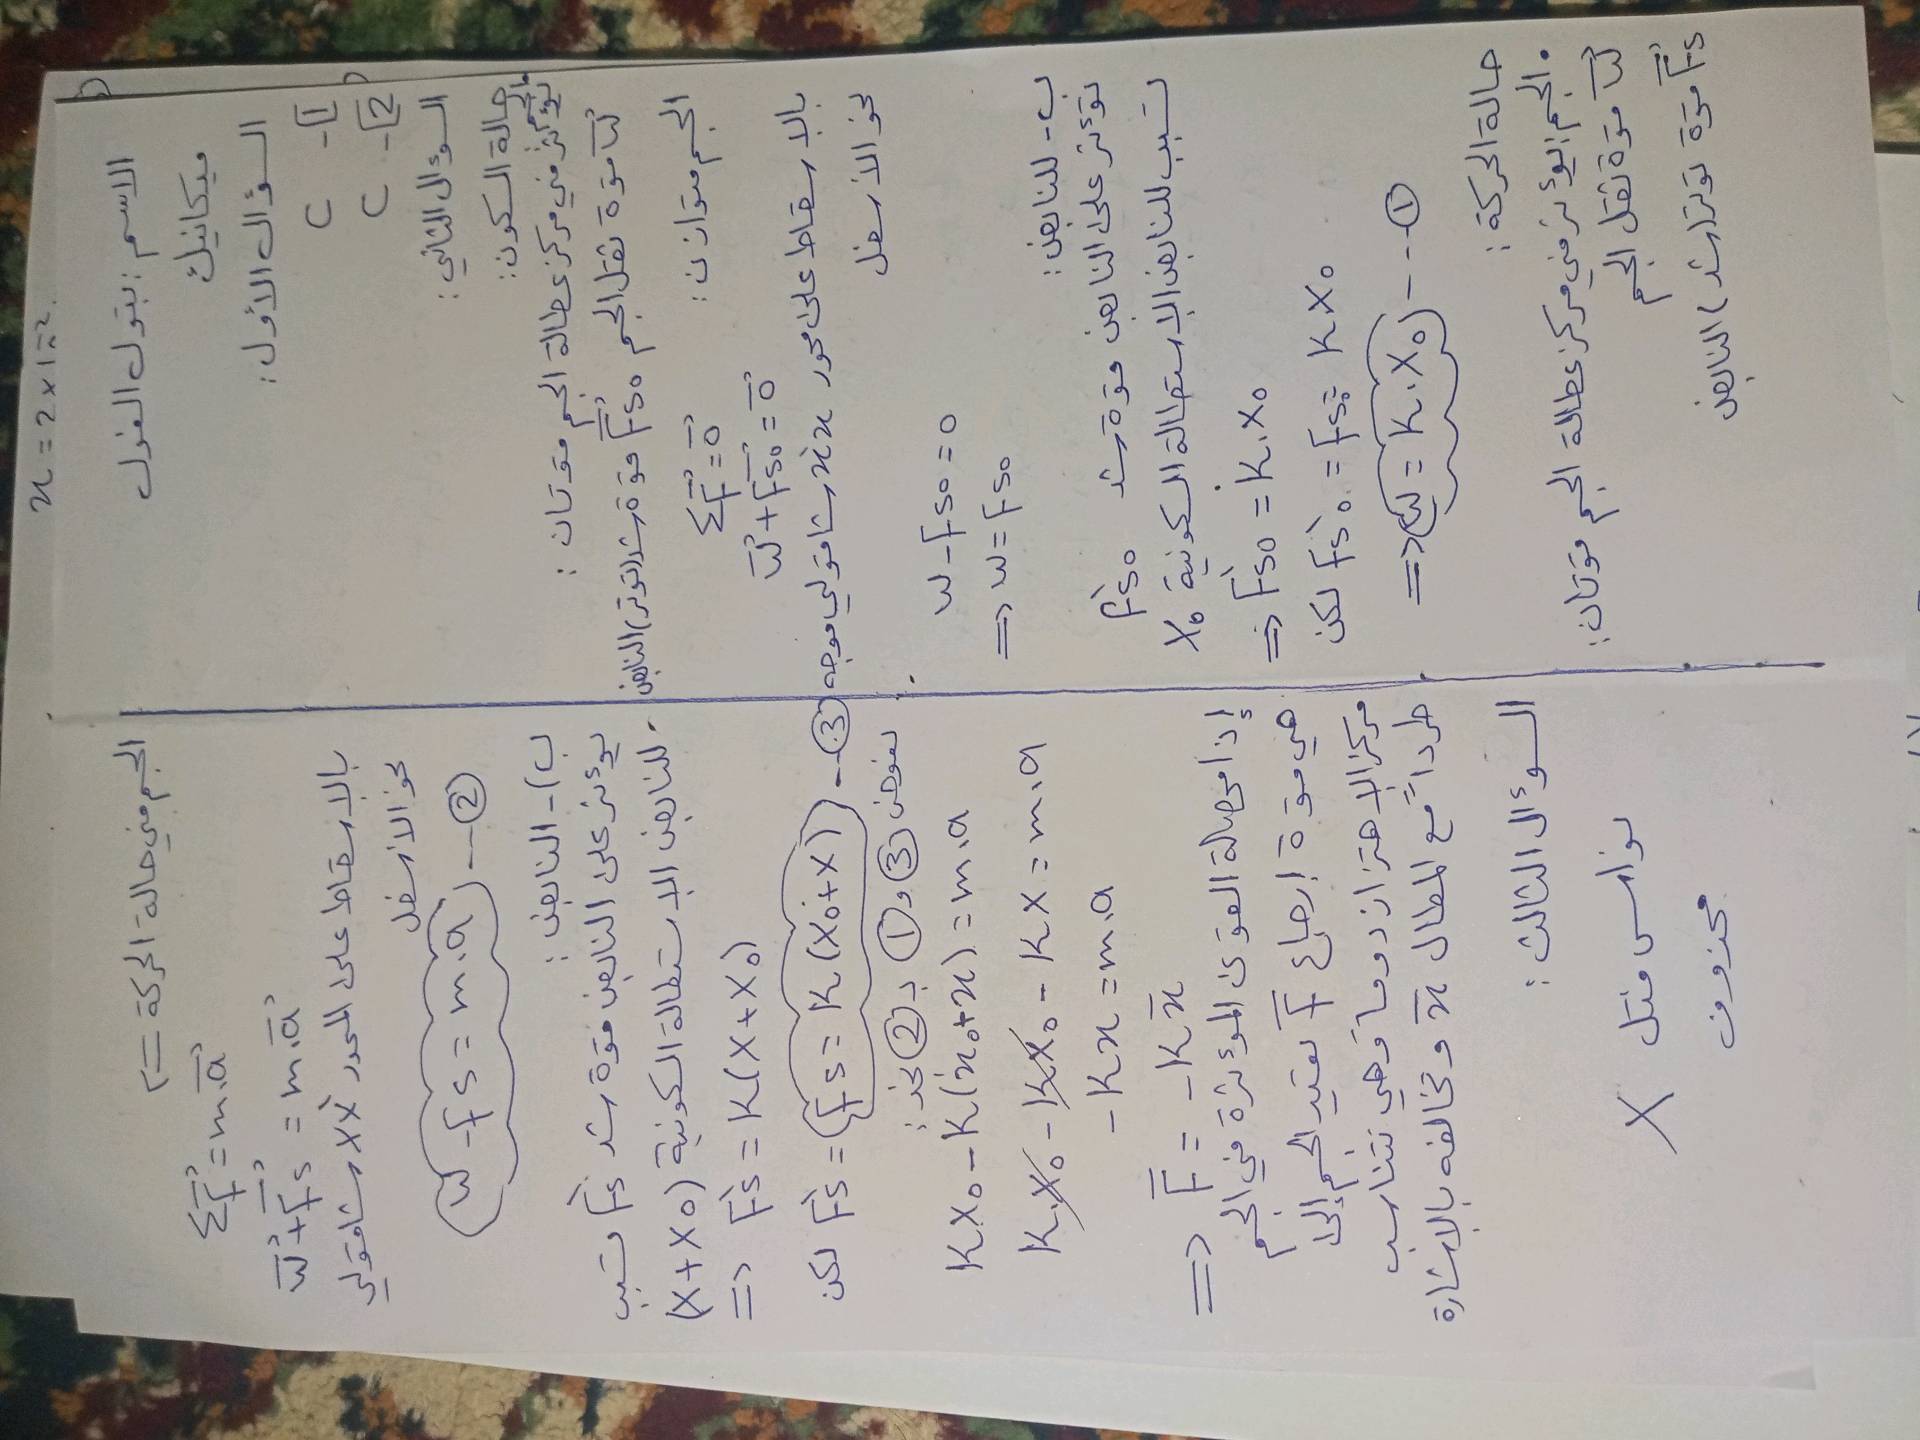 x = 2 × 1 = 2
الاسم : بتول
ميكانيك
السؤال الأول :
1 - C
2 - C
السؤال الثاني :
حالة السكون :
يؤثر في مركز عطالة الجسم قوتان :
قوة ثقل الجسم Fs₀ قوة شد (توتر) النابض
الجسم متوازن :
ΣF = 0
W + Fs₀ = 0
بالاسقاط على محور xx شاقولي موجه
نحو الأسفل
W - Fs₀ = 0
=> W = Fs₀
ب - للنابض :
تؤثر على النابض قوة شد Fs₀
تسبب للنابض الاستطالة السكونية x₀
=> Fs₀ = k . x₀
لكن Fs₀ = Fs₀ = k x₀
=> W = k . x₀ --- ①
حالة الحركة :
الجسم : يؤثر في مركز عطالة الجسم قوتان :
قوة ثقل الجسم
Fs قوة توتر (شد) النابض
الجسم في حالة الحركة <=
ΣF = m.a
W + Fs = m.a
بالاسقاط على المحور xx شاقولي
نحو الأسفل
W - Fs = m.a --- ②
ب) - النابض :
يؤثر على النابض قوة شد Fs تسبب
للنابض الاستطالة السكونية (x + x₀)
=> Fs = k(x + x₀)
لكن Fs = Fs = k(x₀+x) -- ③
نعوض ③ و ① بـ ② نجد :
kx₀ - k(x₀+x) = m.a
k.x₀ - kx₀ - kx = m.a
-kx = m.a
=> F = -kx
إذا محصلة القوى المؤثرة في الجسم
هي قوة إرجاع F تعيد الجسم إلى
مركز الاهتزاز دوما وهي تتناسب
طرداً مع المطال x وتخالفه بالإشارة
السؤال الثالث :
نواس فتل X
محذوف